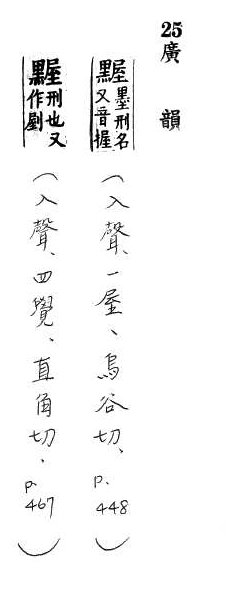 25 廣韻
䵫 墨刑名又音握 (入聲、一屋、烏谷切、p.448)
䵫 刑也又作剭 (入聲、四覺、直角切、p.467)